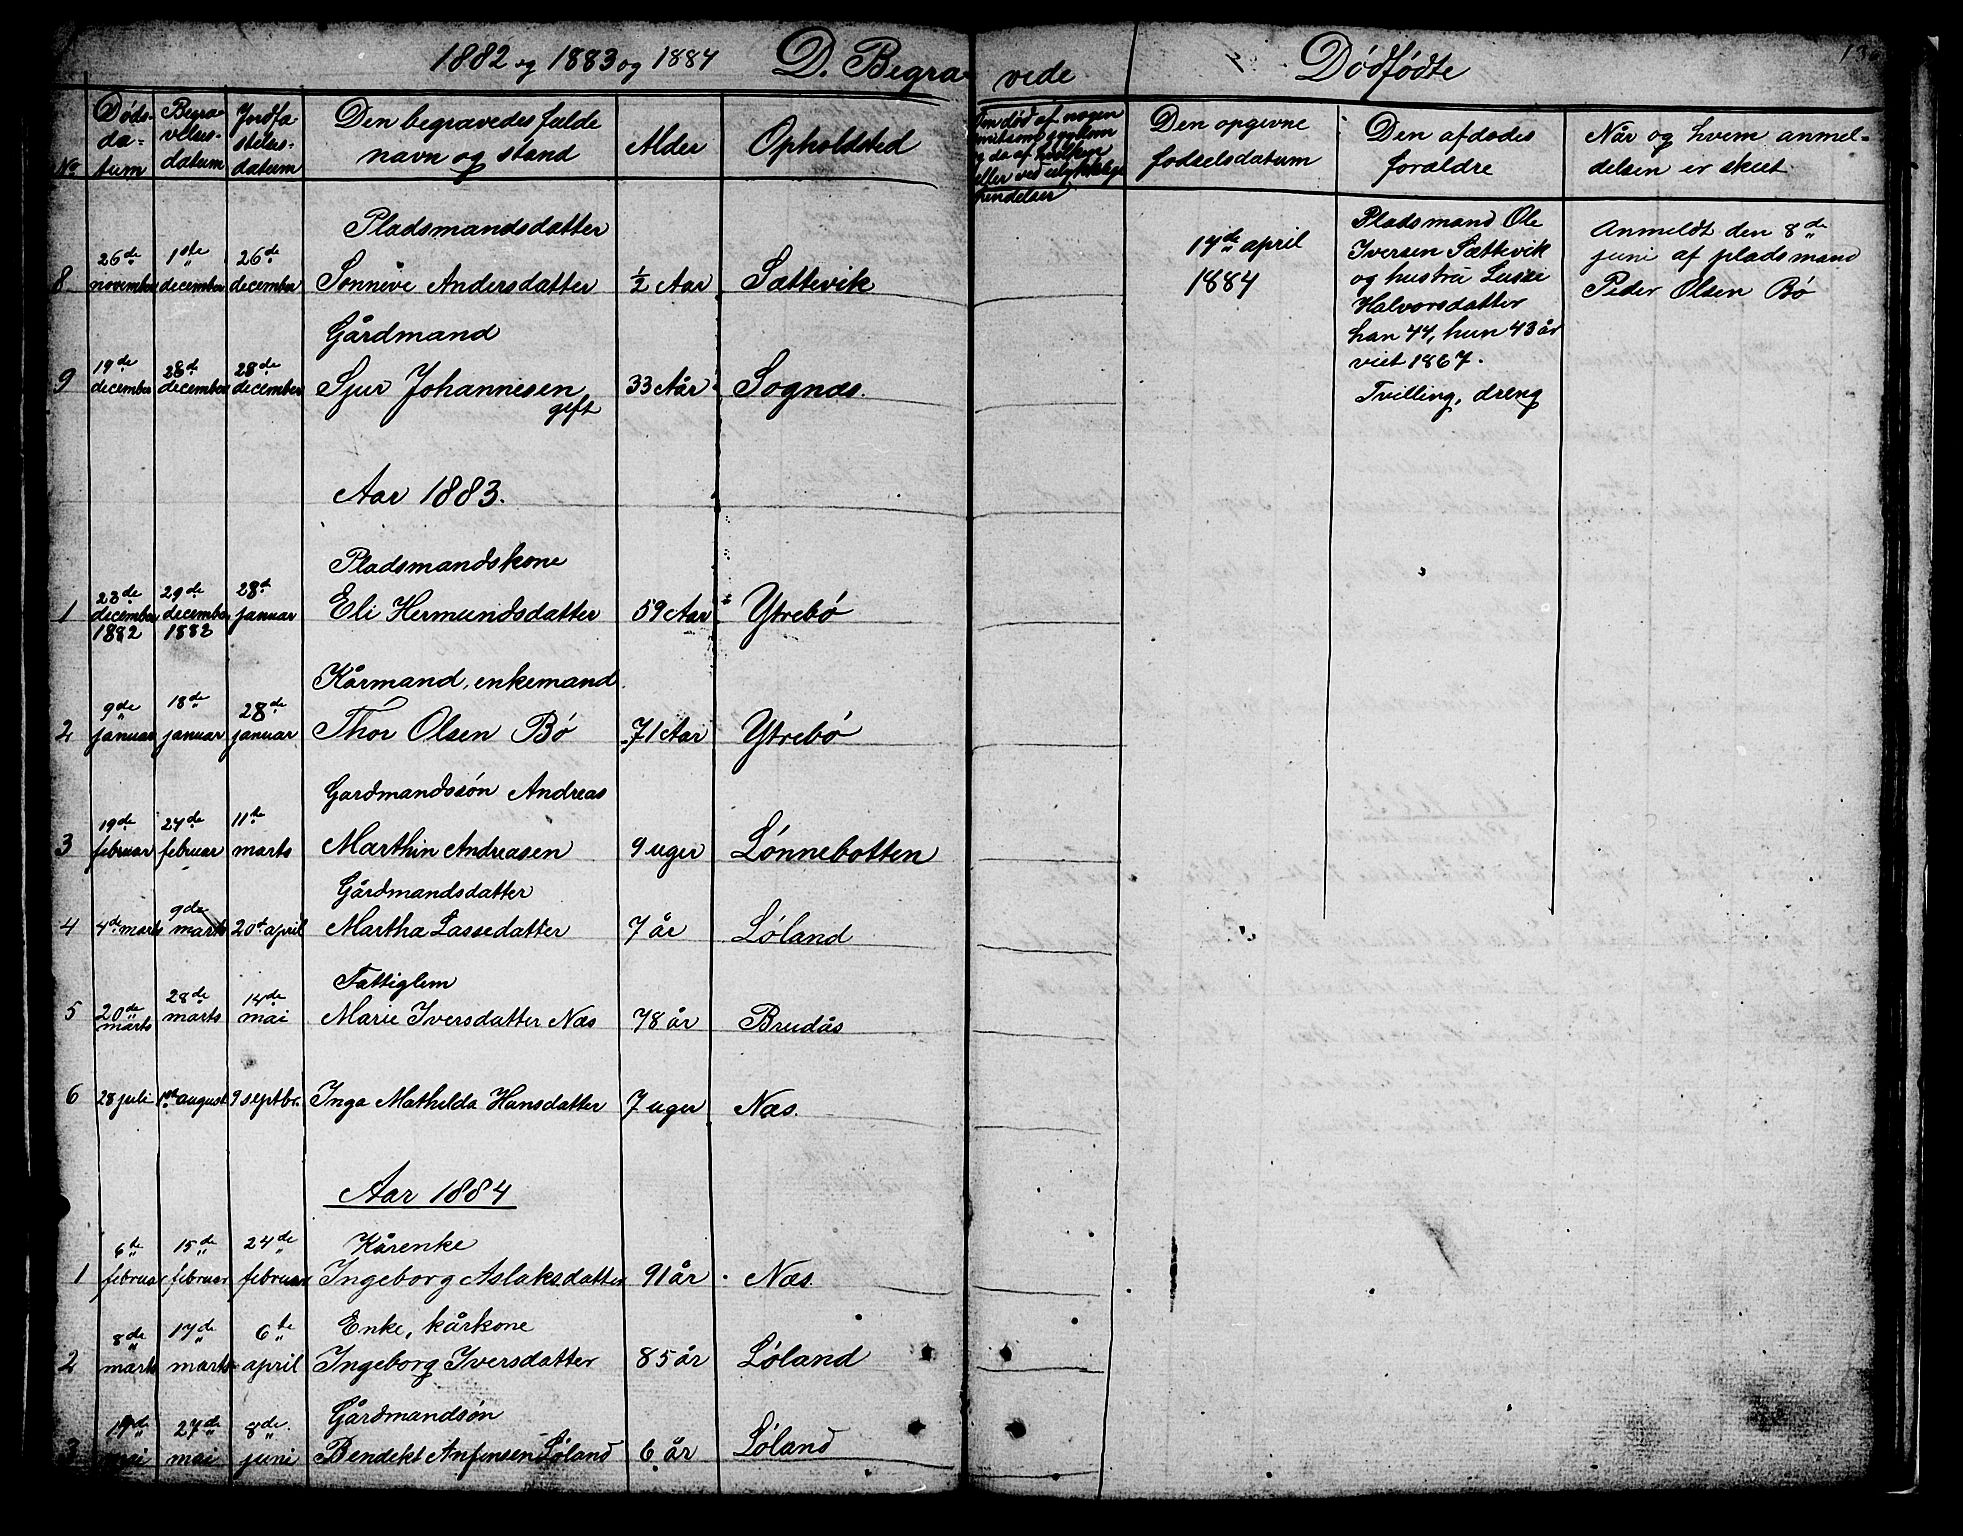 1882 og 1883 og 1884 D. Begravede Dødfødte
No
Dødsdatum
Begravelsesdatum
Jordfæstelsesdatum
Den begravedes fulde
navn og stand
Alder
Opholdsted
Om død af nogen
og da af hvilken
eller ved ulykkelige
hendelser
Den opgivne
fødselsdatum
Den afdødes
forældre
Når og hvem anmel-
delsen er skeet
Pladsmandsdatter
8 26de november 1ste december 26de december Sønneve Andersdatter 1/2 Aar Sættevik
Gårdmand
9 19de december 28d december 28de december Sjur Johannesen 33 Aår Sognæs.
gift
Aar 1883.
Pladsmandskone
1 23de december 1882 29de december 1882 28d januar Eli Hermundsdatter 59 Aar Ytrebø
Kårmand, enkemand.
2 9de januar 18de januar 28de januar Thor Olsen Bø 71 Aar Ytrebø
Gardmandssøn Andreas
3 19de februar 27de februar 11te marts Marthin Andreasen 9 uger Lønnebotten
Gårdmandsdatter
4 4de marts 9de marts 20d april Martha Lassedatter 7 år Løland
Fattiglem
5 20de marts 28de marts 14de mai Marie Iversdatter Næs 78 år Brudås
6 28 juli 1ste august 9 septbr. Inga Mathilda Hansdatter 7 uger Næs.
Aar 1884
Kårenke
1 6te februar 15de februar 24de februar Ingeborg Aslaksdatter 91 år Næs.
Enke, kårkone
2 8de marts 17de marts 6te april Ingeborg Iversdatter 85 år Løland
Gårdmandsøn
3 mai 27de mai 8de juni Bendekt Anfinsen Løland 6 år Løland
17de april
1884
Pladsmand Ole
Iversen Sættevik
og hustru
Halvorsdatter
han 44, hun 43 år
viet 1867.
Tvilling, dreng
Anmeldt den 8de
juni af pladsmand
Peder Olsen Bø